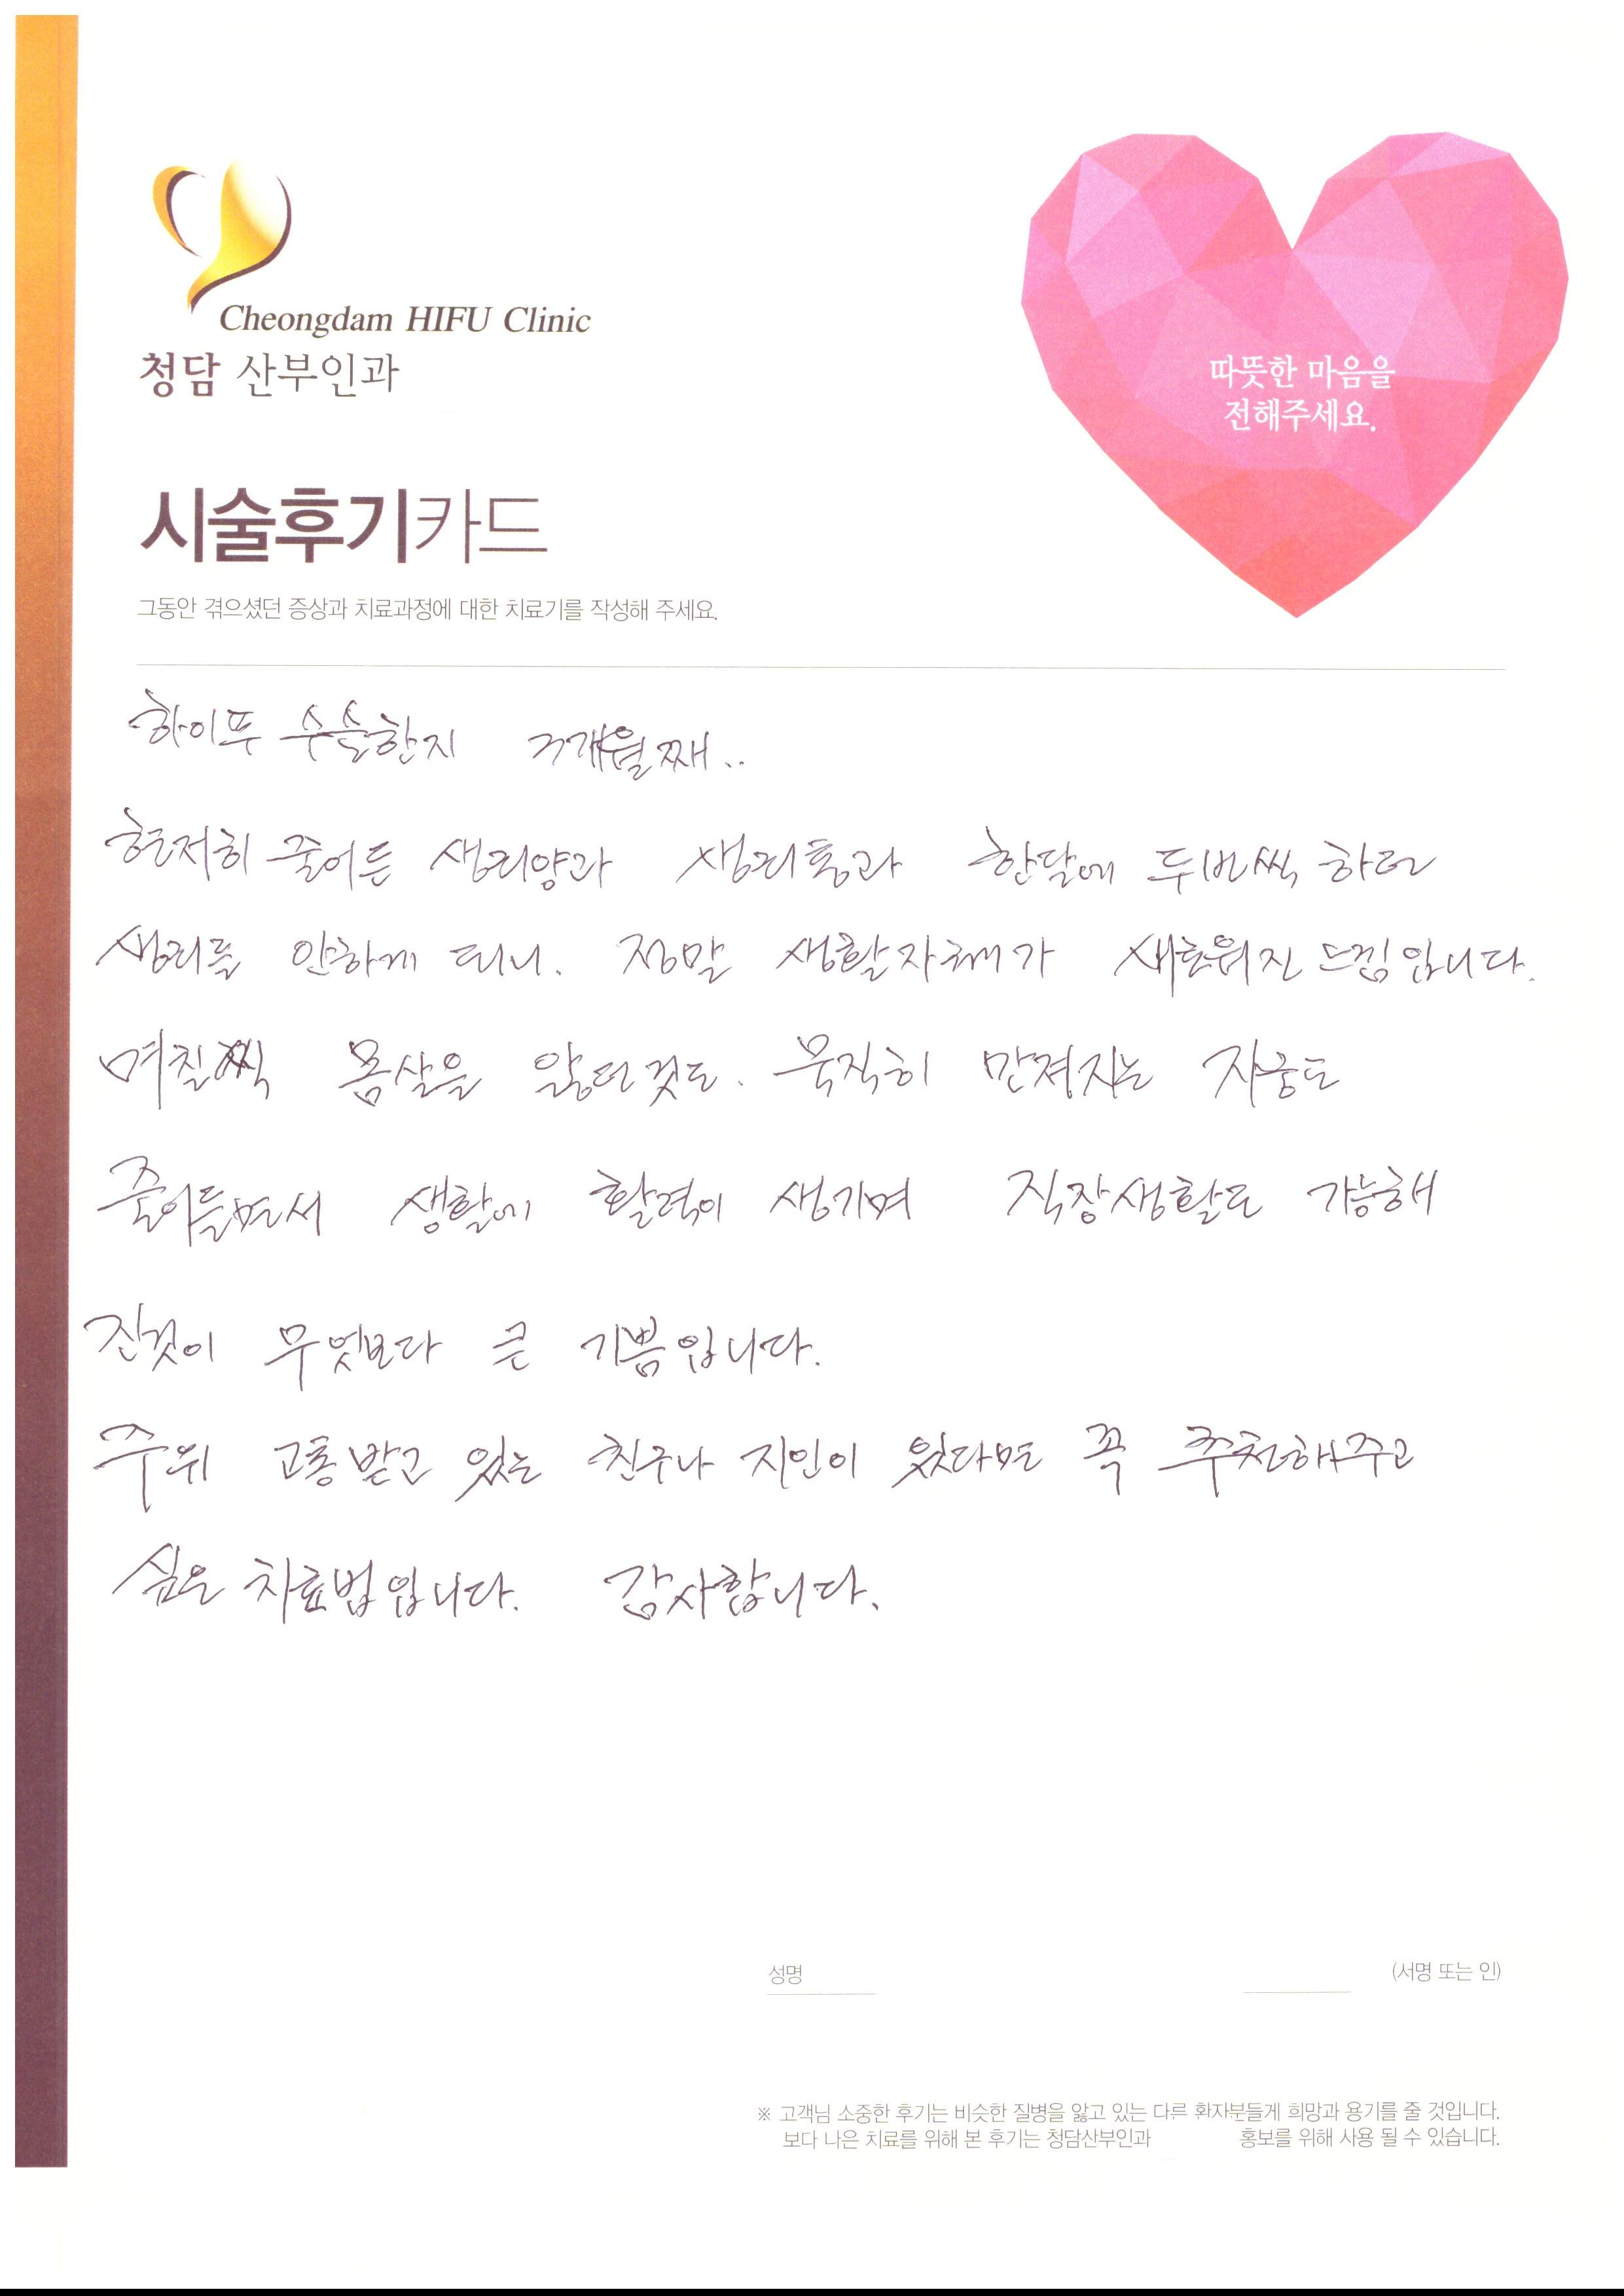 Cheongdam HIFU Clinic
청담 산부인과
따뜻한 마음을
전해주세요.
시술후기카드
그동안 겪으셨던 증상과 치료과정에 대한 치료기를 작성해 주세요.
하이푸 수술한지 3개월째..
현저히 줄어든 생리양과 생리통과 한달에 두번씩 하던
생리를 안하게 되니. 정말 생활자체가 새로워진 느낌입니다.
며칠씩 몸살을 앓던것도. 묵직히 만져지는 자궁도
줄어들면서 생활에 활력이 생기며 직장생활도 가능해
진것이 무엇보다 큰 기쁨입니다.
주위 고통받고 있는 친구나 지인이 있다면 꼭 추천해주고
싶은 치료법입니다. 감사합니다.
성명 (서명 또는 인)
※ 고객님 소중한 후기는 비슷한 질병을 앓고 있는 다른 환자분들게 희망과 용기를 줄 것입니다.
보다 나은 치료를 위해 본 후기는 청담산부인과 홍보를 위해 사용 될 수 있습니다.